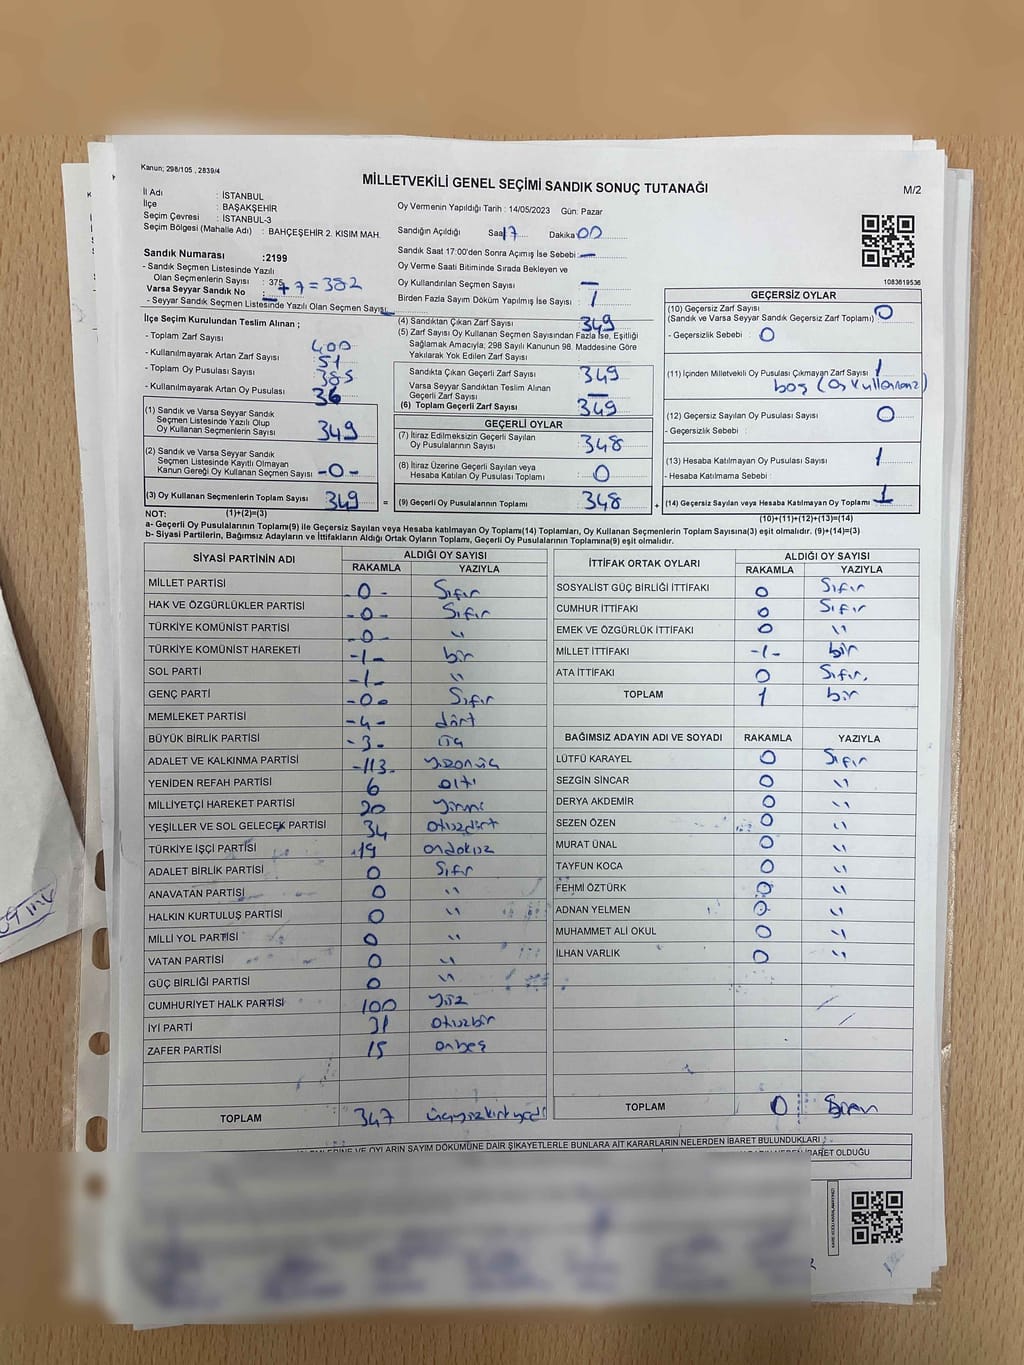 Kanun; 298/105 , 2839/4
MİLLETVEKİLİ GENEL SEÇİMİ SANDIK SONUÇ TUTANAĞI
M/2
İl Adı : İSTANBUL
İlçe : BAŞAKŞEHİR
Seçim Çevresi : İSTANBUL-3
Seçim Bölgesi (Mahalle Adı) : BAHÇEŞEHİR 2. KISIM MAH.
Sandık Numarası :2199
- Sandık Seçmen Listesinde Yazılı
Olan Seçmenlerin Sayısı : 375 +7=382
Varsa Seyyar Sandık No : –
- Seyyar Sandık Seçmen Listesinde Yazılı Olan Seçmen Sayısı –
Oy Vermenin Yapıldığı Tarih : 14/05/2023 Gün: Pazar
Sandığın Açıldığı Saat 17 Dakika 00
Sandık Saat 17:00'den Sonra Açımış İse Sebebi: –
Oy Verme Saati Bitiminde Sırada Bekleyen ve
Oy Kullandırılan Seçmen Sayısı –
Birden Fazla Sayım Döküm Yapılmış İse Sayısı 1
1083619536
İlçe Seçim Kurulundan Teslim Alınan ;
- Toplam Zarf Sayısı 400
- Kullanılmayarak Artan Zarf Sayısı : 51
- Toplam Oy Pusulası Sayısı : 385
- Kullanılmayarak Artan Oy Pusulası 36
(1) Sandık ve Varsa Seyyar Sandık
Seçmen Listesinde Yazılı Olup
Oy Kullanan Seçmenlerin Sayısı 349
(2) Sandık ve Varsa Seyyar Sandık
Seçmen Listesinde Kayıtlı Olmayan
Kanun Gereği Oy Kullanan Seçmen Sayısı -0-
(3) Oy Kullanan Seçmenlerin Toplam Sayısı 349 =
(4) Sandıktan Çıkan Zarf Sayısı 349
(5) Zarf Sayısı Oy Kullanan Seçmen Sayısından Fazla İse, Eşitliği
Sağlamak Amacıyla; 298 Sayılı Kanunun 98. Maddesine Göre
Yakılarak Yok Edilen Zarf Sayısı :
Sandıkta Çıkan Geçerli Zarf Sayısı 349
Varsa Seyyar Sandıktan Teslim Alınan
Geçerli Zarf Sayısı –
(6) Toplam Geçerli Zarf Sayısı 349
GEÇERLİ OYLAR
(7) İtiraz Edilmeksizin Geçerli Sayılan
Oy Pusulalarının Sayısı 348
(8) İtiraz Üzerine Geçerli Sayılan veya
Hesaba Katılan Oy Pusulası Toplamı 0
(9) Geçerli Oy Pusulalarının Toplamı 348 +
GEÇERSİZ OYLAR
(10) Geçersiz Zarf Sayısı
(Sandık ve Varsa Seyyar Sandık Geçersiz Zarf Toplamı) 0
- Geçersizlik Sebebi : 0
(11) İçinden Milletvekili Oy Pusulası Çıkmayan Zarf Sayısı 1
boş
(12) Geçersiz Sayılan Oy Pusulası Sayısı 0
- Geçersizlik Sebebi :
(13) Hesaba Katılmayan Oy Pusulası Sayısı 1
- Hesaba Katılmama Sebebi :
(14) Geçersiz Sayılan veya Hesaba Katılmayan Oy Toplamı 1
NOT: (1)+(2)=(3) (10)+(11)+(12)+(13)=(14)
a- Geçerli Oy Pusulalarının Toplamı(9) ile Geçersiz Sayılan veya Hesaba katılmayan Oy Toplamı(14) Toplamları, Oy Kullanan Seçmenlerin Toplam Sayısına(3) eşit olmalıdır. (9)+(14)=(3)
b- Siyasi Partilerin, Bağımsız Adayların ve İttifakların Aldığı Ortak Oyların Toplamı, Geçerli Oy Pusulalarının Toplamına(9) eşit olmalıdır.
SİYASİ PARTİNİN ADI ALDIĞI OY SAYISI
RAKAMLA YAZIYLA
MİLLET PARTİSİ -0- Sıfır
HAK VE ÖZGÜRLÜKLER PARTİSİ -0- Sıfır
TÜRKİYE KOMÜNİST PARTİSİ -0- "
TÜRKİYE KOMÜNİST HAREKETİ -1- bir
SOL PARTİ -1- "
GENÇ PARTİ -0- Sıfır
MEMLEKET PARTİSİ -4- dört
BÜYÜK BİRLİK PARTİSİ -3- üç
ADALET VE KALKINMA PARTİSİ -113- yüzonüç
YENİDEN REFAH PARTİSİ 6 altı
MİLLİYETÇİ HAREKET PARTİSİ 20 yirmi
YEŞİLLER VE SOL GELECEK PARTİSİ 34 otuzdört
TÜRKİYE İŞÇİ PARTİSİ 19 ondokuz
ADALET BİRLİK PARTİSİ 0 Sıfır
ANAVATAN PARTİSİ 0 "
HALKIN KURTULUŞ PARTİSİ 0 "
MİLLİ YOL PARTİSİ 0 "
VATAN PARTİSİ 0 "
GÜÇ BİRLİĞİ PARTİSİ 0 "
CUMHURİYET HALK PARTİSİ 100 yüz
İYİ PARTİ 31 otuzbir
ZAFER PARTİSİ 15 onbeş
TOPLAM 347 üçyüzkırkyedi
İTTİFAK ORTAK OYLARI ALDIĞI OY SAYISI
RAKAMLA YAZIYLA
SOSYALİST GÜÇ BİRLİĞİ İTTİFAKI 0 Sıfır
CUMHUR İTTİFAKI 0 Sıfır
EMEK VE ÖZGÜRLÜK İTTİFAKI 0 "
MİLLET İTTİFAKI -1- bir
ATA İTTİFAKI 0 Sıfır.
TOPLAM 1 bir
BAĞIMSIZ ADAYIN ADI VE SOYADI RAKAMLA YAZIYLA
LÜTFÜ KARAYEL 0 Sıfır
SEZGİN SİNCAR 0 "
DERYA AKDEMİR 0 "
SEZEN ÖZEN 0 "
MURAT ÜNAL 0 "
TAYFUN KOCA 0 "
FEHMİ ÖZTÜRK 0 "
ADNAN YELMEN 0 "
MUHAMMET ALİ OKUL 0 "
İLHAN VARLIK 0 "
TOPLAM 0
İŞLEMLERİNE VE OYLARIN SAYIM DÖKÜMÜNE DAİR ŞİKAYETLERLE BUNLARA AİT KARARLARIN NELERDEN İBARET BULUNDUKLARI ;
NEDEN İBARET OLDUĞU